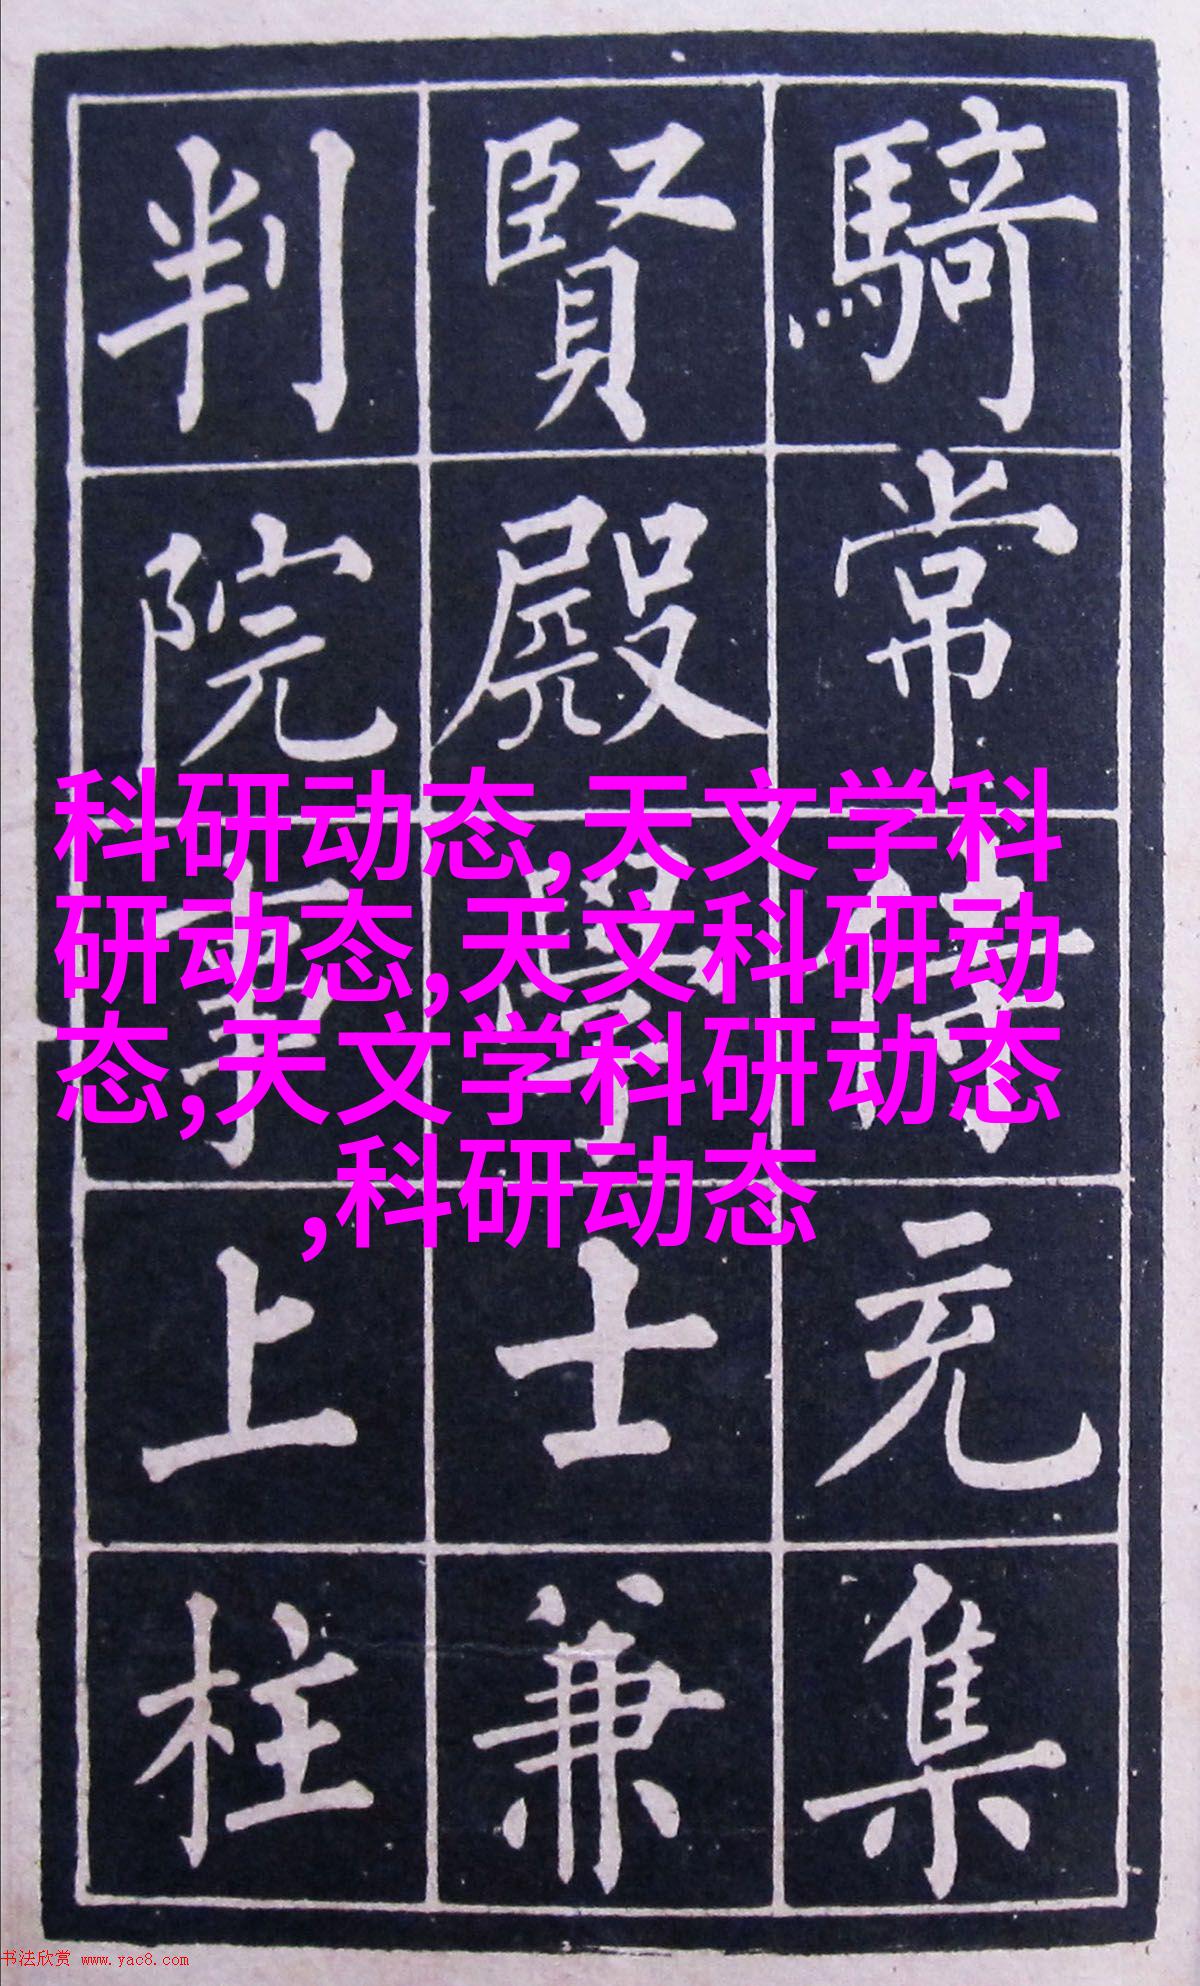 騎常侍充集
賢殿學士兼
判院事上柱
科研动态,天文学科
研动态,天文科研动
态,天文学科研动态
,科研动态
书法欣赏 www.yac8.com